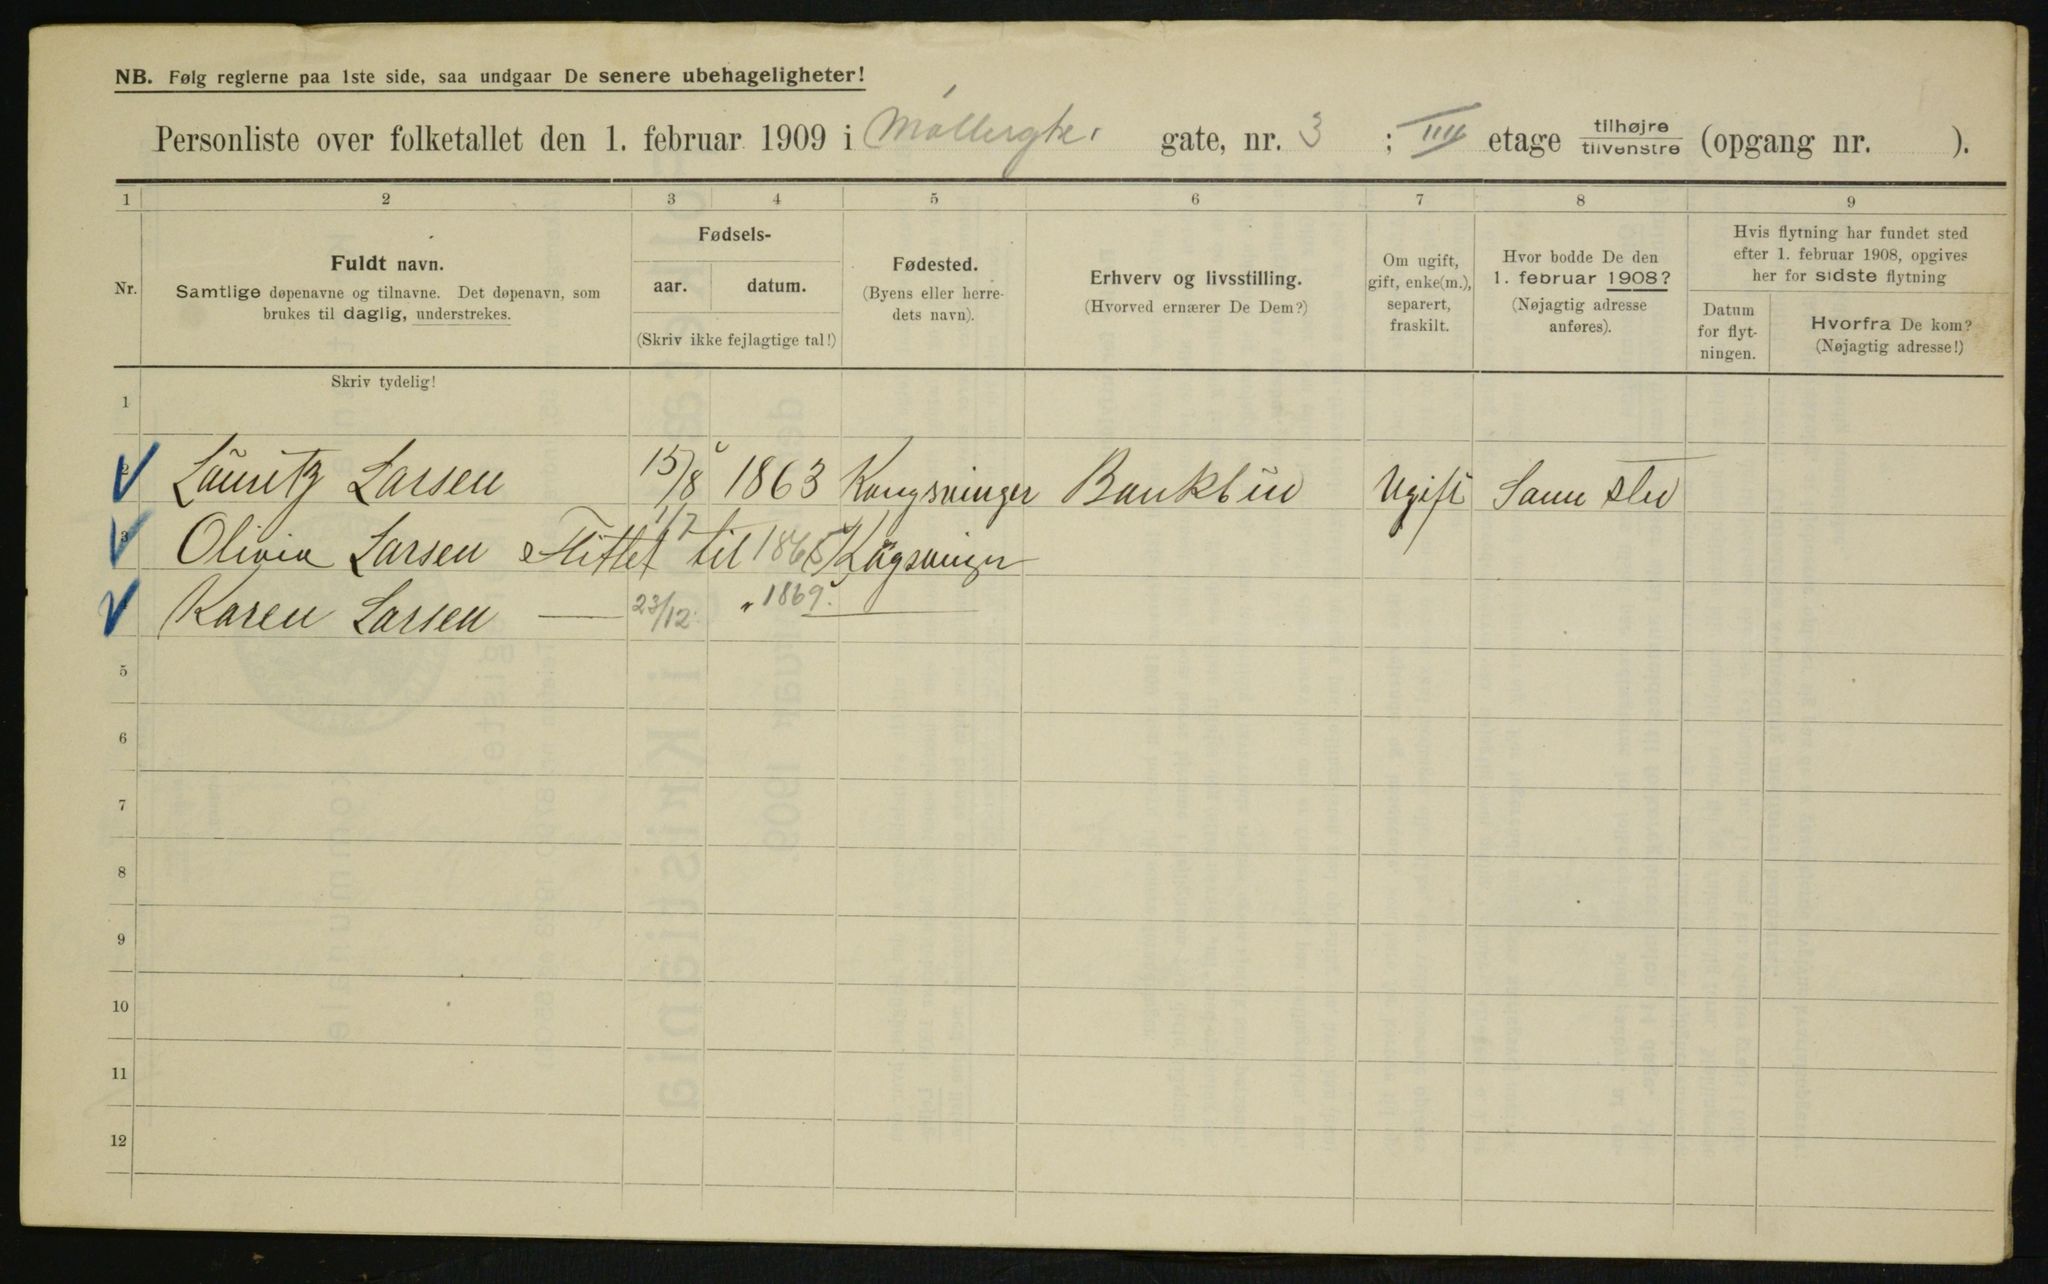 NB. Følg reglerne paa 1ste side, saa undgaar De senere ubehageligheter!
Personliste over folketallet den 1. februar 1909 i Møllergt. gate, nr. 3 ; III etage tilhøjre tilvenstre (opgang nr. ).
1 2 3 4 5 6 7 8 9
Nr.
Fuldt navn.
Samtlige døpenavne og tilnavne. Det døpenavn, som
brukes til daglig, understrekes.
Skriv tydelig!
Fødsels-
aar. datum.
(Skriv ikke fejlagtige tal!)
Fødested.
(Byens eller herre-
dets navn).
Erhverv og livsstilling.
(Hvorved ernærer De Dem?)
Om ugift,
gift, enke(m.),
separert,
fraskilt.
Hvor bodde De den
1. februar 1908?
(Nøjagtig adresse
anføres).
Hvis flytning har fundet sted
efter 1. februar 1908, opgives
her for sidste flytning
Datum
for flyt-
ningen.
Hvorfra De kom?
(Nøjagtig adresse!)
1
2 Lauritz Larsen 15/8 1863 Kongsvinger Bankbud Ugift Samme sted
3 Olivia Larsen Flittet 1/7 til 1865 Kogsvinger
Karen Larsen — 23/12 " 1869. —
5
6
7
8
9
10
11
12